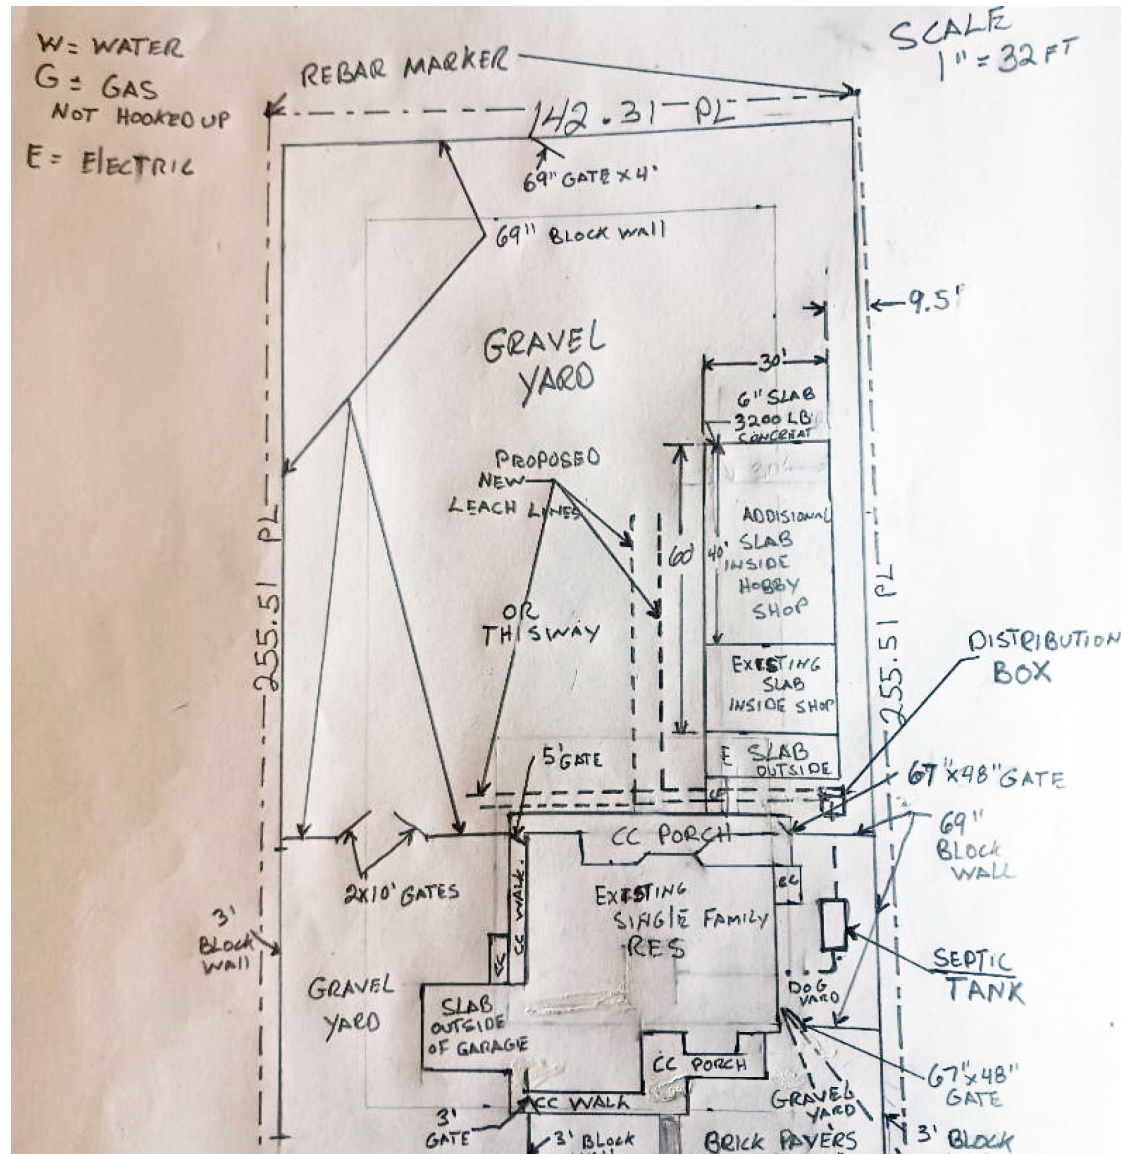 W = WATER
G = GAS
NOT HOOKED UP
E = ElECTRIC
REBAR MARKER
SCALE
1" = 32 FT
142.31 PL
69" GATE X 4'
69" BlOCK WAll
9.5'
GRAVEL
YARD
30'
6" SLAB
3200 LB
CONCREAT
PROPOSED
NEW
LEACH LINES
60'
40'
ADDISIONAL
SLAB
INSIDE
HOBBY
SHOP
OR
THIS WAY
255.51 PL
255.51 PL
DISTRIBUTION
BOX
EXISTING
SLAB
INSIDE SHOP
E SLAB
OUTSIDE
5' GATE
67"X48" GATE
CC PORCH
69"
BLOCK
WALL
2X10' GATES
CC WALK.
EXISTING
SINGlE FAMILY
RES
CC
CC
3'
BLOCK
WAll
SEPTIC
TANK
DOG
YARD
GRAVEL
YARD
SLAB
OUTSIDE
OF GARAGE
CC PORCH
67"X48"
GATE
GRAVEL
YARD
CC WALK
3'
GATE
3' BlOCK
BRICK PAVERS
3' BLOCK